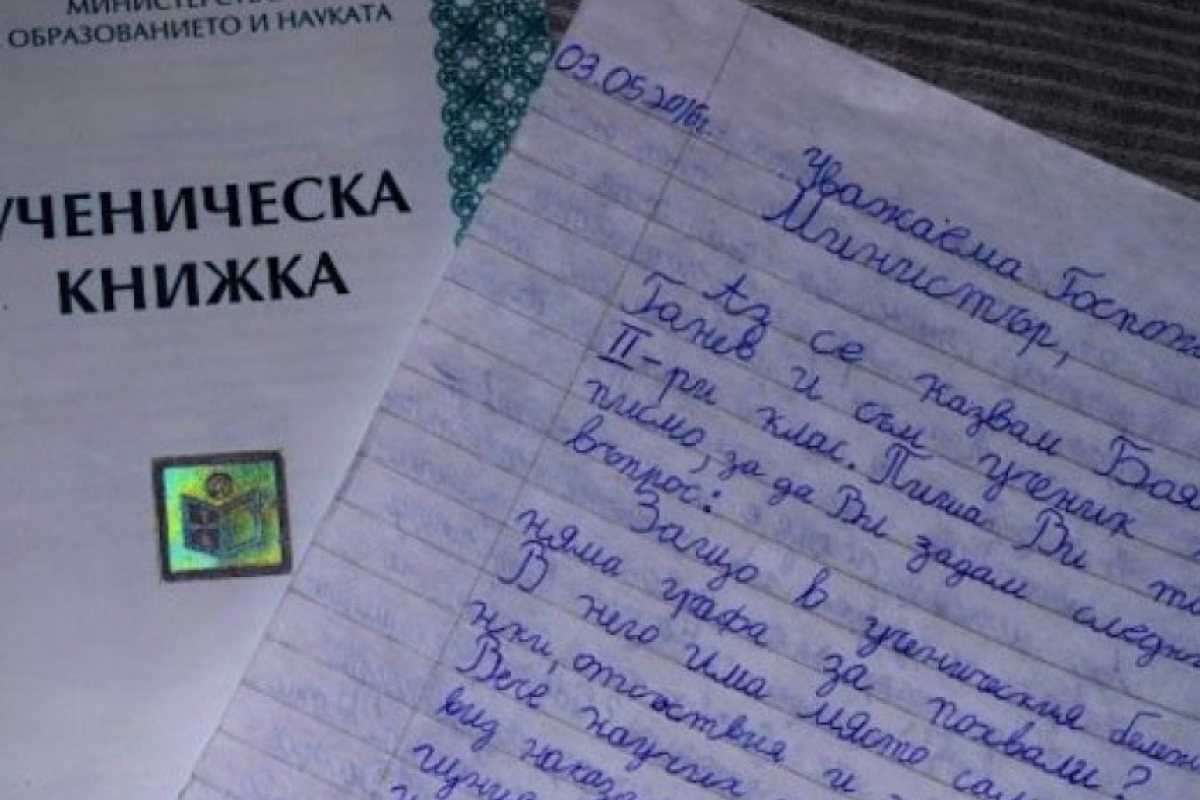 МИНИСТЕРСТВО
ОБРАЗОВАНИЕТО И НАУКАТА
УЧЕНИЧЕСКА
КНИЖКА
03.05.2016г.
Уважаема
Министър,
Аз се казвам
Ганев и съм ученик
II-ри клас. Пиша Ви
писмо, за да Ви задам
въпрос:
Защо в ученическия
няма графа за похвали?
В него има място
отсъствия и
Вече научих
вид